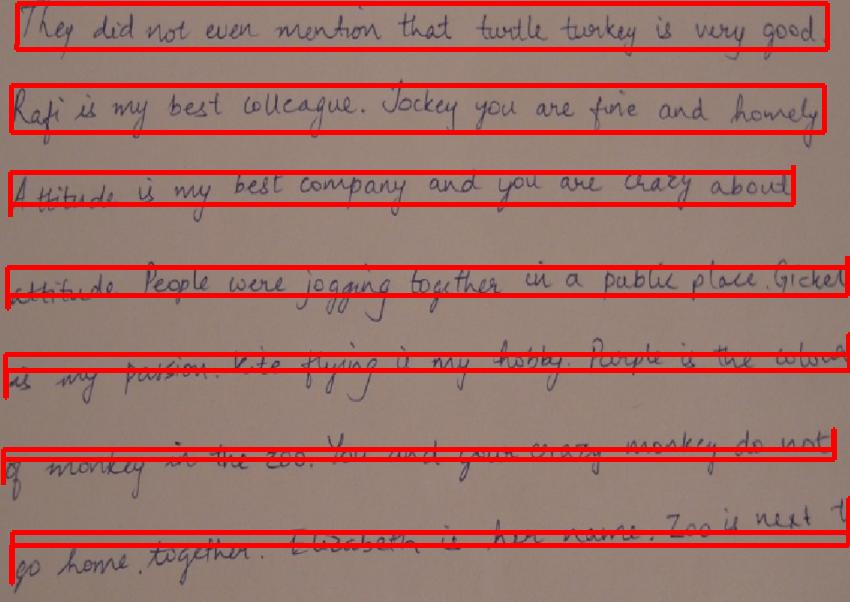 They did not even mention that turtle turkey is very good.
Rafi is my best colleague. Jockey you are fine and homely
Attitude is my best company and you are crazy about
attitude. People were jogging together in a public place.
is my passion. Kite flying is my hobby. Purple is the colour
of monkey in the zoo. You and your crazy monkey do not
go home together. Elizabeth is her name. Zoo is next